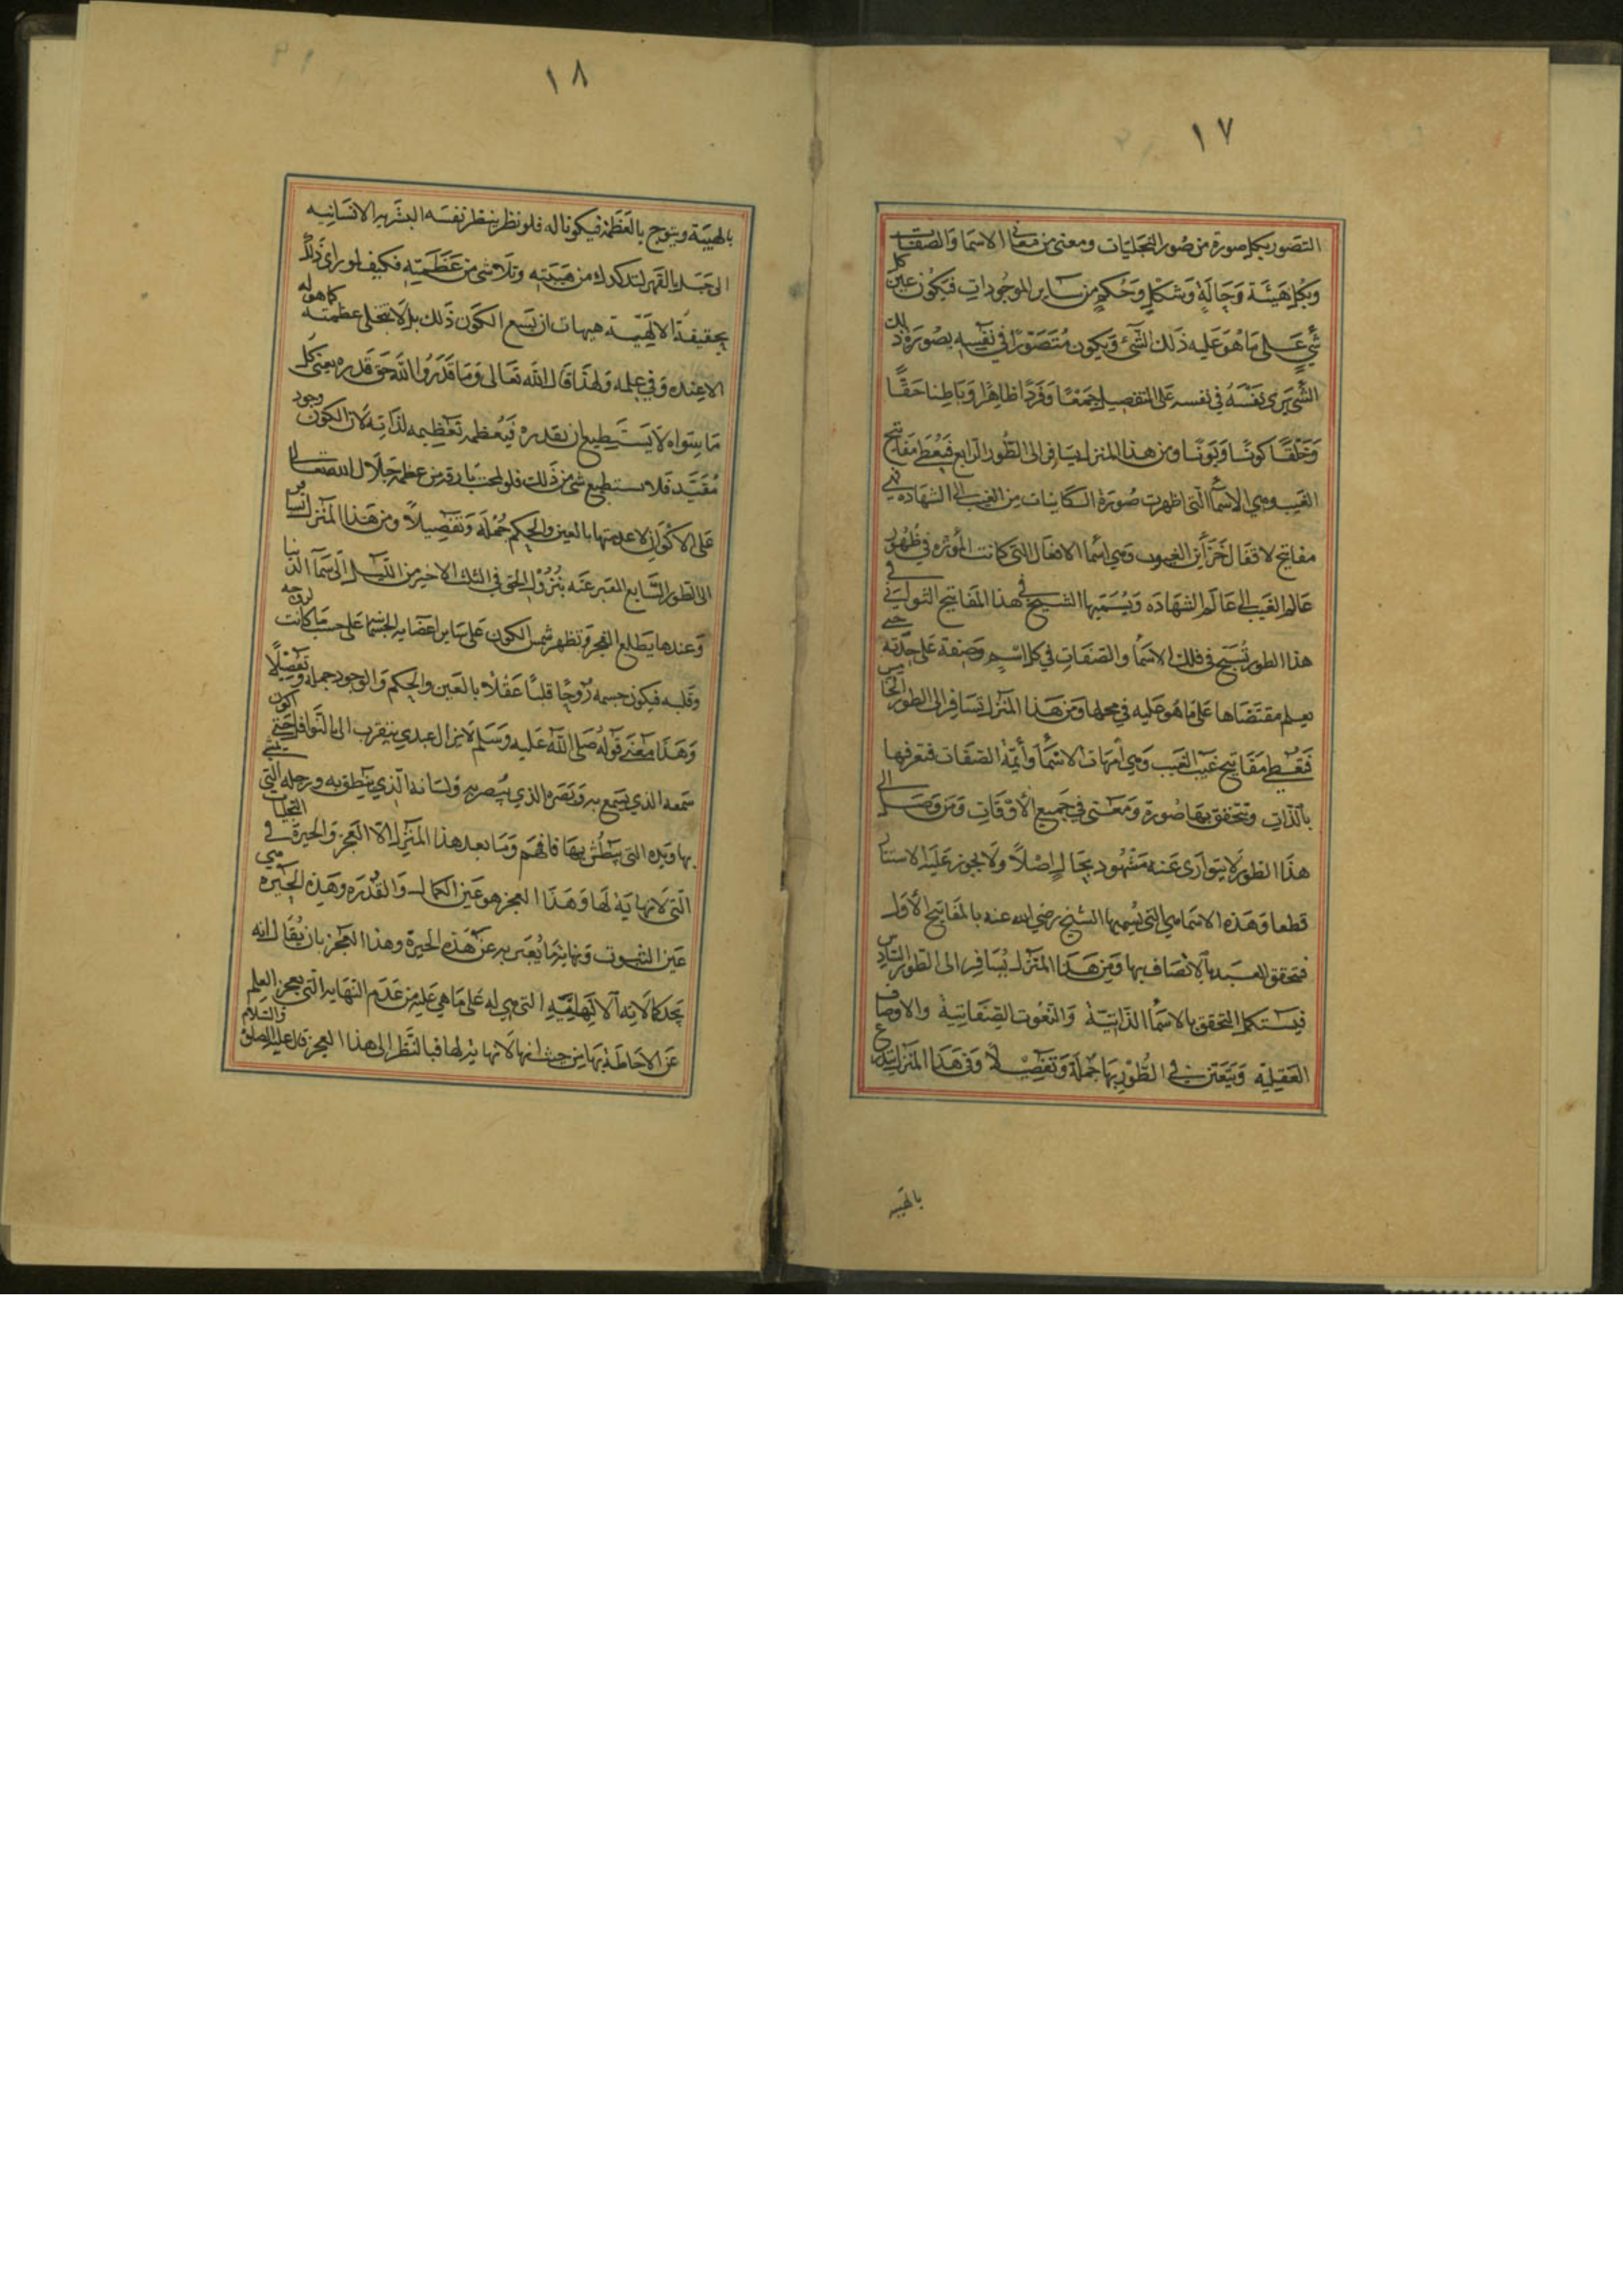 ١٧
التصور بكل صورة من صور التجليات ومعنى من معانى الاسما والصفات
وبكل هيئة وحالة وشكل وحكم من ساير الموجودات فيكون عين كل
شىء على ما هو عليه ذلك الشىء ويكون متصورا في نفسه بصورة ذلك
الشى يرى نفسه في نفسه على التفصيل جمعا وفردا ظاهرا وباطنا حقا
وخلقا كونا وبونا ومن هذا المنزل يسافر الى الطور الرابع فيعطى مفاتيح
الغيب وهي الاسما التى ظهرت صورة الكاينات من الغيب الى الشهاده فهي
مفاتيح لاقفال خزائن الغيوب وهي اسما الافعال التى كانت المؤثره في ظهور
عالم الغيب الى عالم الشهاده ويسميها الشيخ في هذا المفاتيح الثوانى في
هذا الطور تسبح في فلك الاسما والصفات في كل اسم وصفة على حدته حتى
يعلم مقتضاها على ما هو عليه في محلها ومن هذا المنزل يسافر الى الطور الخامس
فتعطى مفاتيح غيب الغيب وهي امهات الاسما وأيمة الصفات فتعرفها
بالذات وتتحقق بها صورة ومعنى في جميع الاوقات ومن وصل الى
هذا الطور لا يتوارى عنه مشهود بحال اصلا ولا يجوز عليه الاستتار
قطعا وهذه الاسما هي التى يسميها الشيخ رضي الله عنه بالمفاتيح الأول
فتحقق العبد بالاتصاف بها ومن هذا المنزل يسافر الى الطور السادس
فيستكمل التحقق بالاسما الذاتية والنعوت الصفاتية والاوصاف
العقليه ويتعين في الطور بها جملة وتفصيلا وفى هذا المنزل يتدرع
بالهيبه
١٨
بالهيبة ويتوج بالعظمة فيكونا له فلو نظر بنظر نفسه البشريه الانسانيه
الى جبل بالقهر لتدكدك من هيبته وتلاشى من عظمته فكيف لو راى ذلك
بحقيقة الالهية هيهات ان يسع الكون ذلك بل لا تتجلى عظمته كما هو له
الا عنده وفي علمه ولهذا قال الله تعالى وما قدروا الله حق قدره يعنى كل
ما سواه لا يستطيع ان يقدره فيعظمه تعظيمه لذاته لان الكون وجود
مقيد فلا يستطيع شى من ذلك فلو لمحت بارقة من عظمة جلال الله تعالى
على الاكوان لاعدمتها بالعين والحكم جملة وتفصيلا ومن هذا المنزل تسافر
الى الطور السابع المعبر عنه بنزول الحق في الثلث الاخير من الليل الى سما الدنيا
وعندها يطلع الفجر وتظهر شمس الكون على ساير اعضايه الجسما على حسب ما كانت لروحه
وقلبه فيكون جسمه روحا قلبا عقلا بالعين والحكم والوجود جملة وتفصيلا
وهذا معنى قوله صلى الله عليه وسلم لا يزال عبدي يتقرب الى بالنوافل حتى اكون
سمعه الذي يسمع به وبصره الذي يبصر به ولسانه الذي ينطق به ورجله التى يمشى
بها ويده التى يبطش بها فافهم وما بعد هذا المنزل الا العجز والحيرة في التجليات
التى لا نهاية لها وهذا العجز هو عين الكمال والقدره وهذه الحيره هي
عين الثبوت ونهاية ما يعبر به عن هذه الحيرة وهذا العجز بان يقال انه
يجد كمالاته الالهيه التى هي له على ما هي عليه من عدم النهايه التى يعجز العلم
عن الاحاطة بها من حيث انها لا نهاية لها فبالنظر الى هذا العجز قال عليه الصلوة والسلام